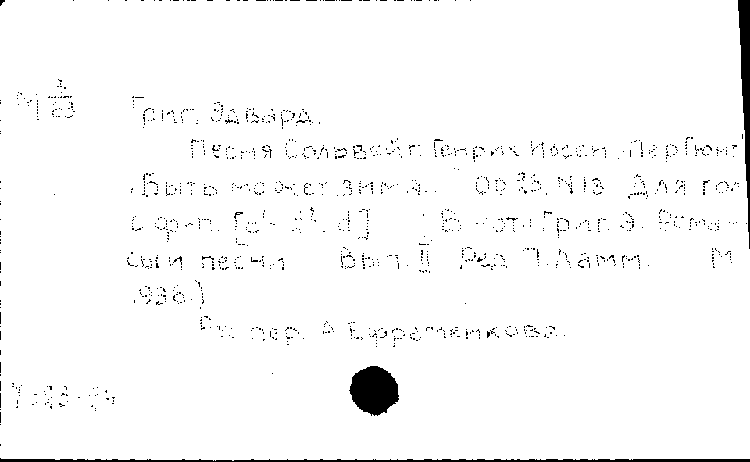 М 1/23
Григ. Эдвард.
Песня Сольвейг. Генрих Ибсен. "Пер Гюнт
"Быть может зима... Op 23, N 13 Для гол
с ф-п. [ d] В нотн: Григ. Э. Рома-
сы и песни Вып. II Ред П. Ламм. М
1936.)
Рус пер. А Ефременкова.